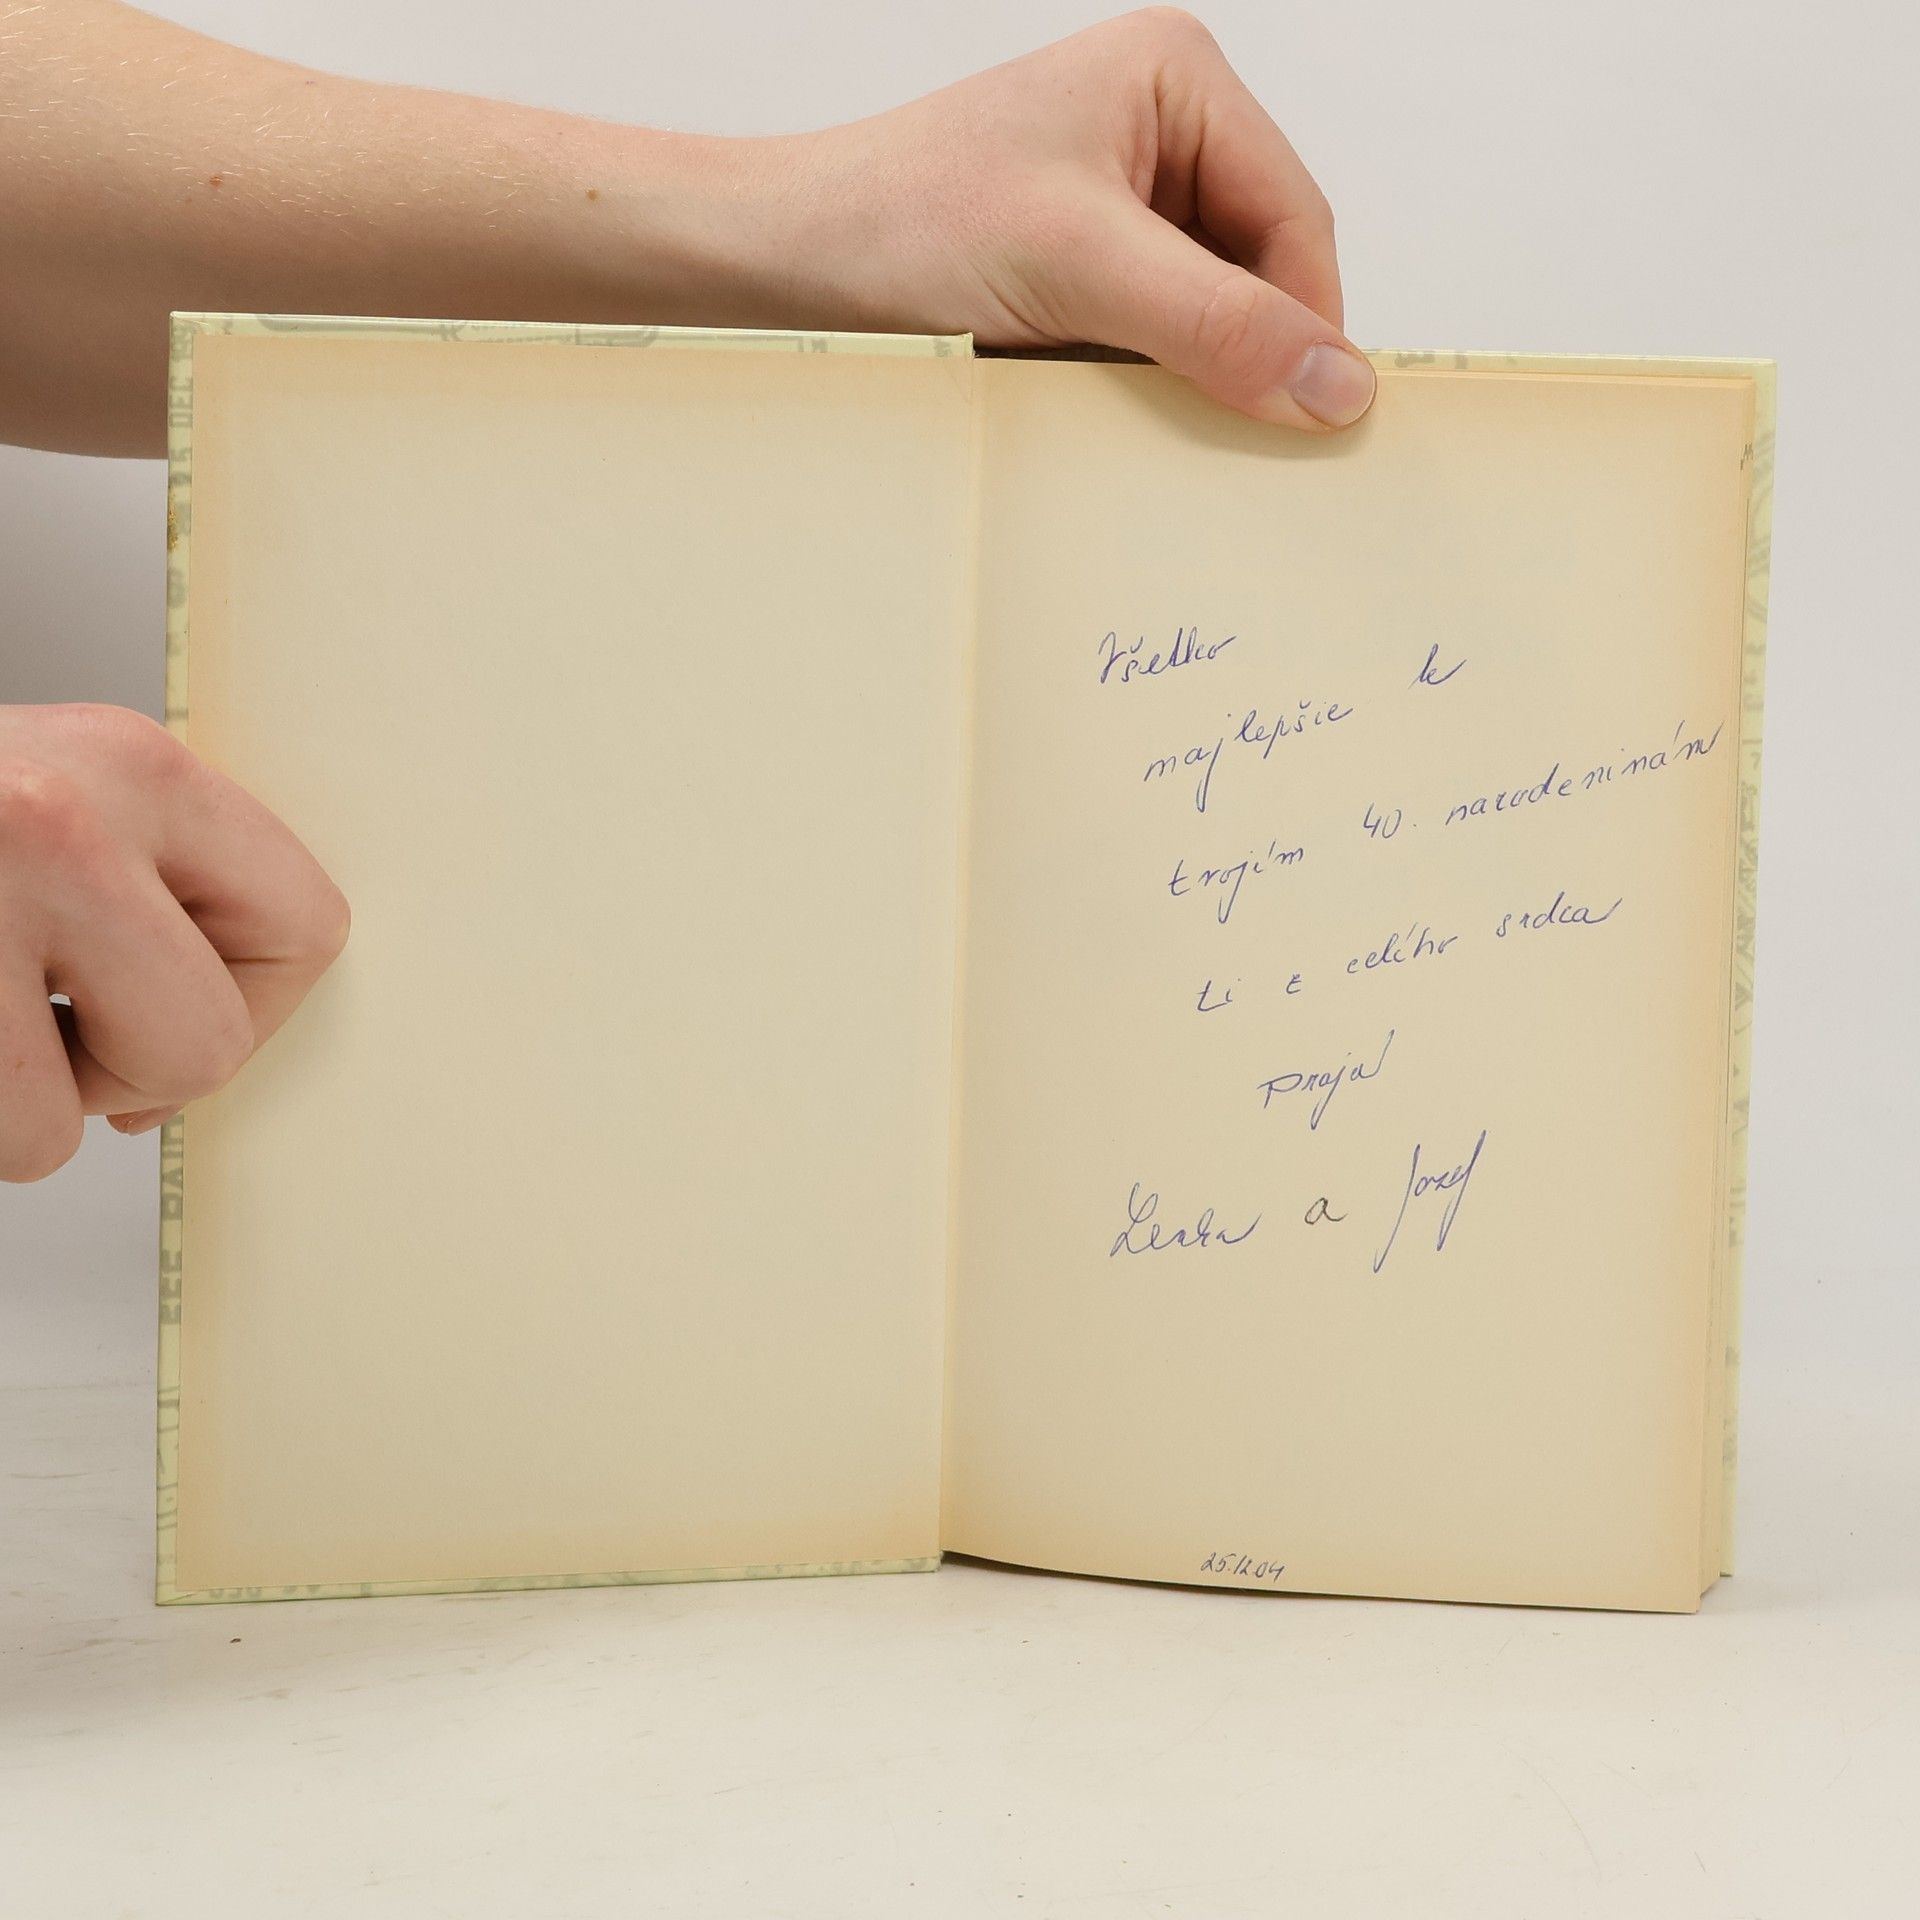 Všetko
najlepšie k
tvojím 40. narodeninám
ti z celého srdca
prajú
Lenka a Jozef
25.12.04